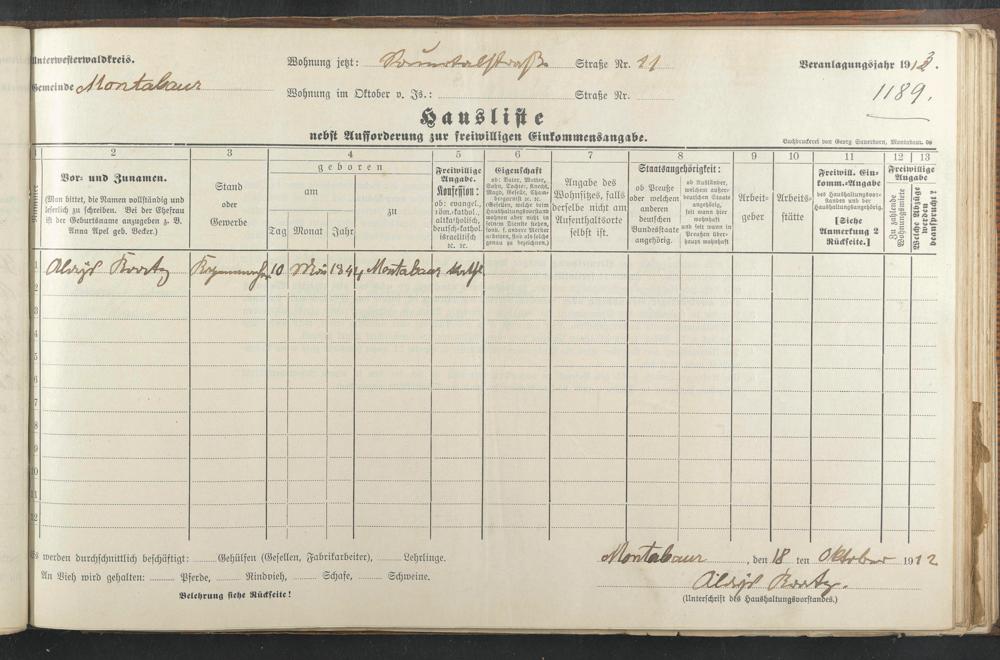 Unterwesterwaldkreis.
Wohnung jetzt: Sauertalstraße Straße Nr. 11
Veranlagungsjahr 1913.
Gemeinde Montabaur
Wohnung im Oktober v. Js.: Straße Nr.
1189.
Hausliste
nebst Aufforderung zur freiwilligen Einkommensangabe.
Buchdruckerei von Georg Sauerborn, Montabaur.
1 2 3 4 5 6 7 8 9 10 11 12 13
Nummer
Vor- und Zunamen.
(Man bittet, die Namen vollständig und
leserlich zu schreiben. Bei der Ehefrau
ist der Geburtsname anzugeben z. B.
Anna Apel geb. Becker.)
Stand
oder
Gewerbe
geboren
am
zu
Tag Monat Jahr
Freiwillige
Angabe.
Konfession:
ob: evangel.,
röm.-kathol.,
altkatholisch,
deutsch-kathol.
israelitisch
ec. ec.
Eigenschaft
ob: Vater, Mutter,
Sohn, Tochter, Knecht,
Magd, Geselle,
Angabe des
Wohnsitzes, falls
derselbe nicht am
Aufenthaltsorte
selbst ist.
Staatsangehörigkeit:
ob Preuße
oder welchem
anderen
deutschen
Bundesstaate
angehörig.
ob Ausländer,
welchem außer-
deutschen Staate
angehörig,
seit wann hier
wohnhaft
und seit wann in
Preußen über-
haupt wohnhaft
Arbeit-
geber
Arbeits-
stätte
Freiwill. Ein-
komm.-Angabe
des Haushaltungsvor-
standes und der
Haushaltungsangehörig.
[Siehe
Anmerkung 2
Rückseite.]
Freiwillige
Angabe
Zu zahlende
Wohnungsmiete
Welche Abzüge
werden
beansprucht?
1 10 Mai 1844 Montabaur kath.
2
3
4
5
6
7
8
9
10
11
12
Es werden durchschnittlich beschäftigt: Gehülfen (Gesellen, Fabrikarbeiter), Lehrlinge.
Montabaur, den 18 ten Oktober 1912
An Vieh wird gehalten: Pferde, Rindvieh, Schafe, Schweine.
Belehrung siehe Rückseite!
(Unterschrift des Haushaltungsvorstandes.)